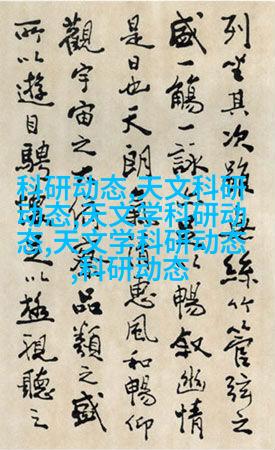 列坐其次雖無絲竹管弦之
盛一觴一詠暢敘幽情
是日也天朗氣惠風和暢仰
觀宇宙之品類之盛
所以遊目騁以極視聽之
科研动态,天文科研
动态,天文学科研动
态,天文学科研动态
,科研动态